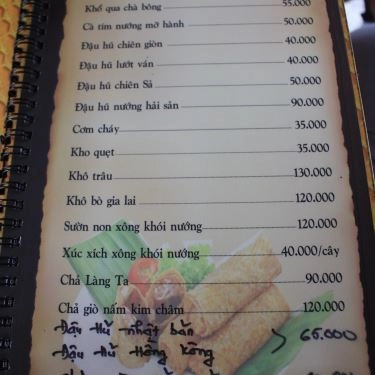 Khổ qua chà bông 55.000
Cà tím nướng mỡ hành 50.000
Đậu hũ chiên giòn 40.000
Đậu hũ lướt ván 40.000
Đậu hũ chiên Sả 50.000
Đậu hũ nướng hải sản 90.000
Cơm cháy 35.000
Kho quẹt 35.000
Khô trâu 130.000
Khô bò gia lai 120.000
Sườn non xông khói nướng 120.000
Xúc xích xông khói nướng 40.000/cây
Chả Làng Ta 90.000
Chả giò nấm kim châm 120.000
Đậu Hủ nhật bản
65.000
Đậu Hủ Hồng Kông